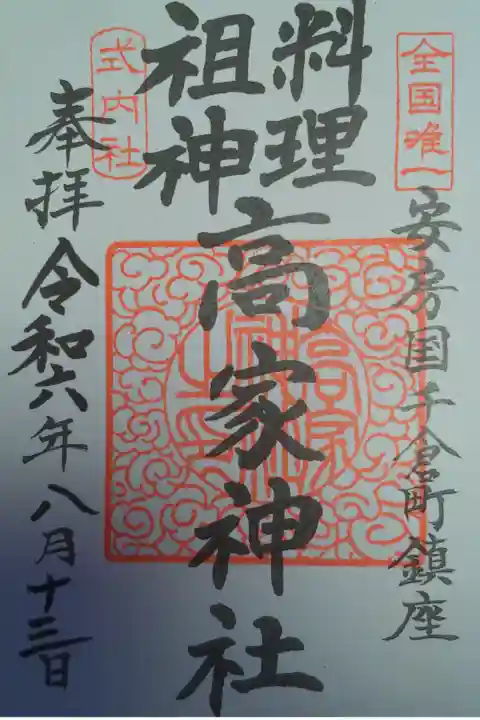 全国唯一
安房国千倉町鎮座
料理
祖神
高家神社
式内社
奉拝
令和六年八月十三日